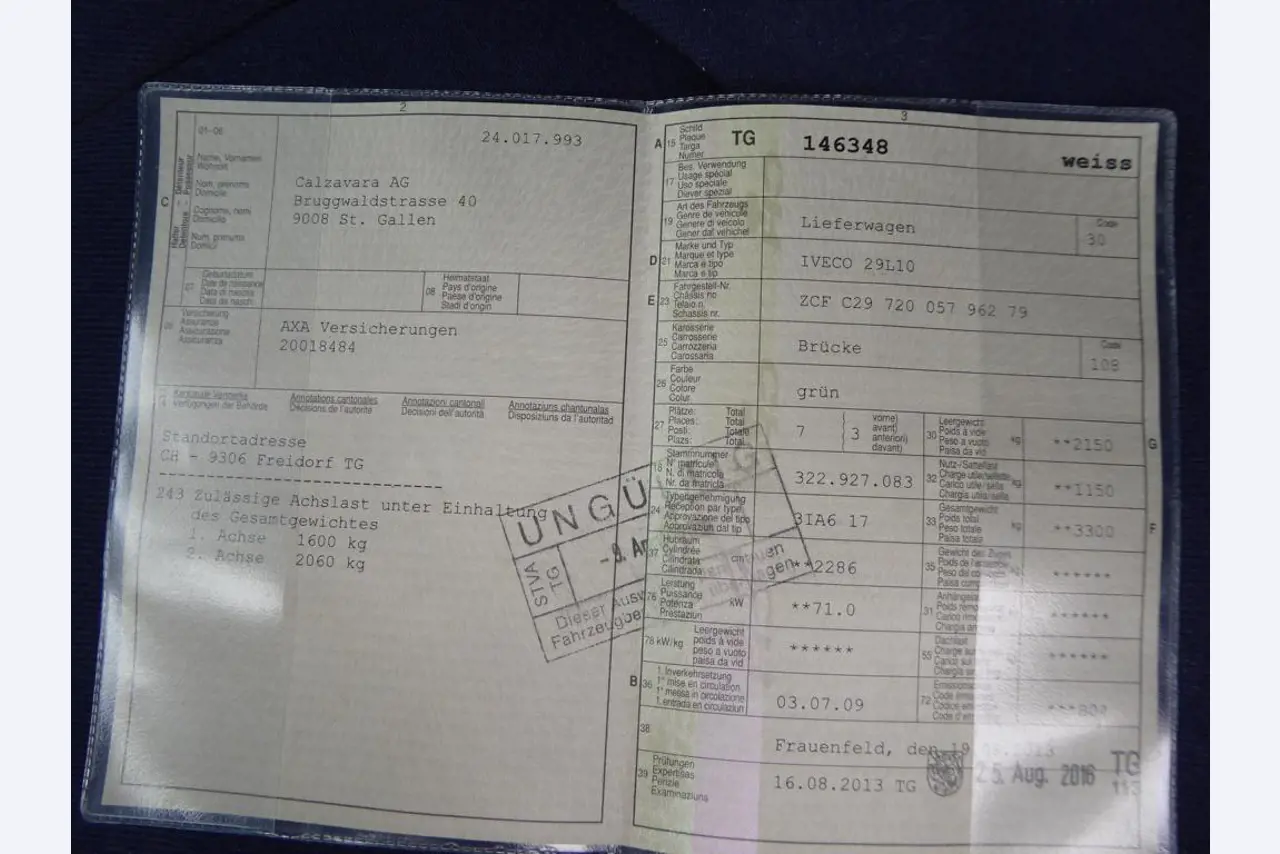 2
01-06
24.017.993
C
Halter
Détenteur
Detentore
Possessur
Name, Vornamen
Wohnort
Nom, prénoms
Domicile
Cognome, nomi
Domicilio
Num, prenums
Domicil
Calzavara AG
Bruggwaldstrasse 40
9008 St. Gallen
07
Geburtsdatum
Date de naissance
Data di nascita
Data da nasch.
08
Heimatstaat
Pays d'origine
Paese d'origine
Stadi d'origin
09
Versicherung
Assurance
Assicurazione
Assicuranza
AXA Versicherungen
20018484
Kantonale Vermerke
Verfügungen der Behörde
Annotations cantonales
Décisions de l'autorité
Annotazioni cantonali
Decisioni dell'autorità
Annotaziuns chantunalas
Disposiziuns da l'autoritad
Standortadresse
CH - 9306 Freidorf TG
243 Zulässige Achslast unter Einhaltung
des Gesamtgewichtes
1. Achse 1600 kg
2. Achse 2060 kg
STVA
TG
Dieser
3
A
15
Schild
Plaque
Targa
Numer
TG
146348
weiss
17
Bes. Verwendung
Usage spécial
Uso speciale
Diever spezial
19
Art des Fahrzeugs
Genre de véhicule
Genere di veicolo
Gener dal vehichel
Lieferwagen
Code
30
D
21
Marke und Typ
Marque et type
Marca e tipo
Marca e tip
IVECO 29L10
E
23
Fahrgestell-Nr.
Châssis no
Telaio n.
Schassis nr.
ZCF C29 720 057 962 79
25
Karosserie
Carrosserie
Carrozzeria
Carossaria
Brücke
Code
108
26
Farbe
Couleur
Colore
Colur
grün
27
Plätze: Total
Places: Total
Posti: Totale
Plazs: Total
7
3
vorne)
avant)
anteriori)
davant)
30
Leergewicht
Poids à vide
Peso a vuoto
Paisa da vid
kg
**2150
G
18
Stammnummer
N° matricule
N. di matricola
Nr. da matricla
322.927.083
32
Nutz-/Sattellast
Charge utile/sellette
Carico utile/sella
Chargia utila/sella
kg
**1150
24
Typengenehmigung
Réception par type
Approvazione del tipo
Approvaziun dal tip
3IA6 17
33
Gesamtgewicht
Poids total
Peso totale
Paisa totala
kg
**3300
F
37
Hubraum
Cylindrée
Cilindrata
Cilindrada
**2286
35
******
76
Leistung
Puissance
Potenza
Prestaziun
kW
**71.0
31
******
78 kW/kg
Leergewicht
poids à vide
peso a vuoto
paisa da vid
******
55
******
B
36
1. Inverkehrsetzung
1re mise en circulation
1a messa in circolazione
1. entrada en circulaziun
03.07.09
72
38
Frauenfeld, den 19
39
Prüfungen
Expertises
Perizie
Examinaziuns
16.08.2013 TG
25. Aug. 2016
TG